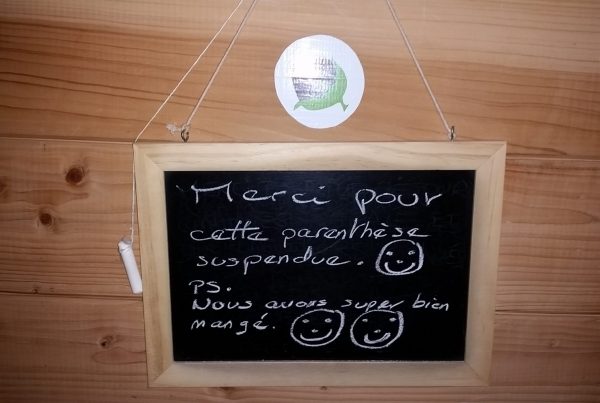 Merci pour
cette parenthèse
suspendue.
PS.
Nous avons super bien
mangé.